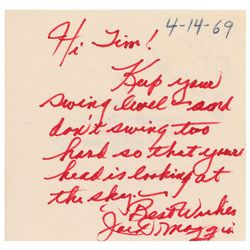 4-14-69
Hi Jim!
Keep your
swing level - and
don't swing too
hard so that your
head is looking at
the sky.
Best Wishes
Joe DiMaggio